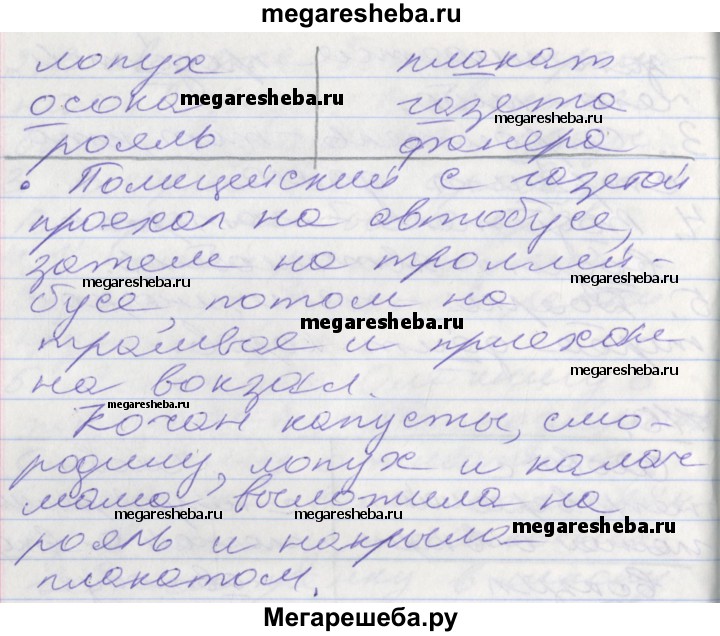 megaresheba.ru
лопух плакат
осока megaresheba.ru газета
megaresheba.ru
рояль фанера
Полицейский с газетой
проехал на автобусе,
затем на троллей-
megaresheba.ru megaresheba.ru
бусе, потом на
megaresheba.ru
трамвае и приехал
megaresheba.ru
на вокзал.
megaresheba.ru
Кочан капусты, смо-
родину, лопух и калач
мама выложила на
megaresheba.ru megaresheba.ru
рояль и накрыла megaresheba.ru
плакатом.
Мегарешеба.ру